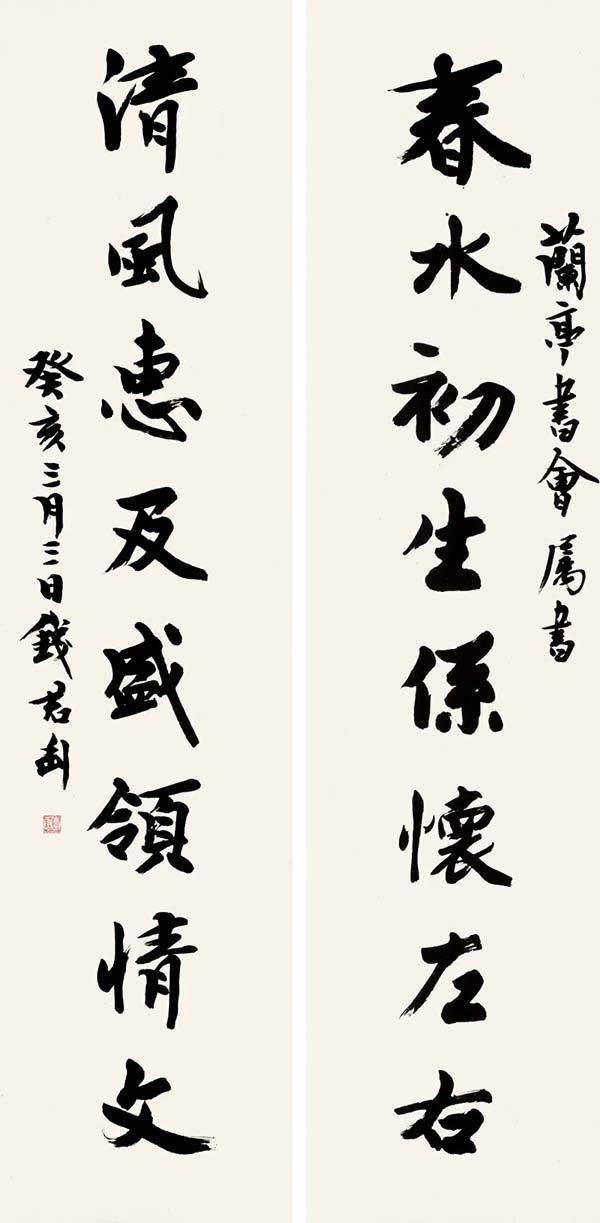 蘭亭書會屬書
春水初生係懷左右
清風惠及盛領情文
癸亥三月三日錢君匋